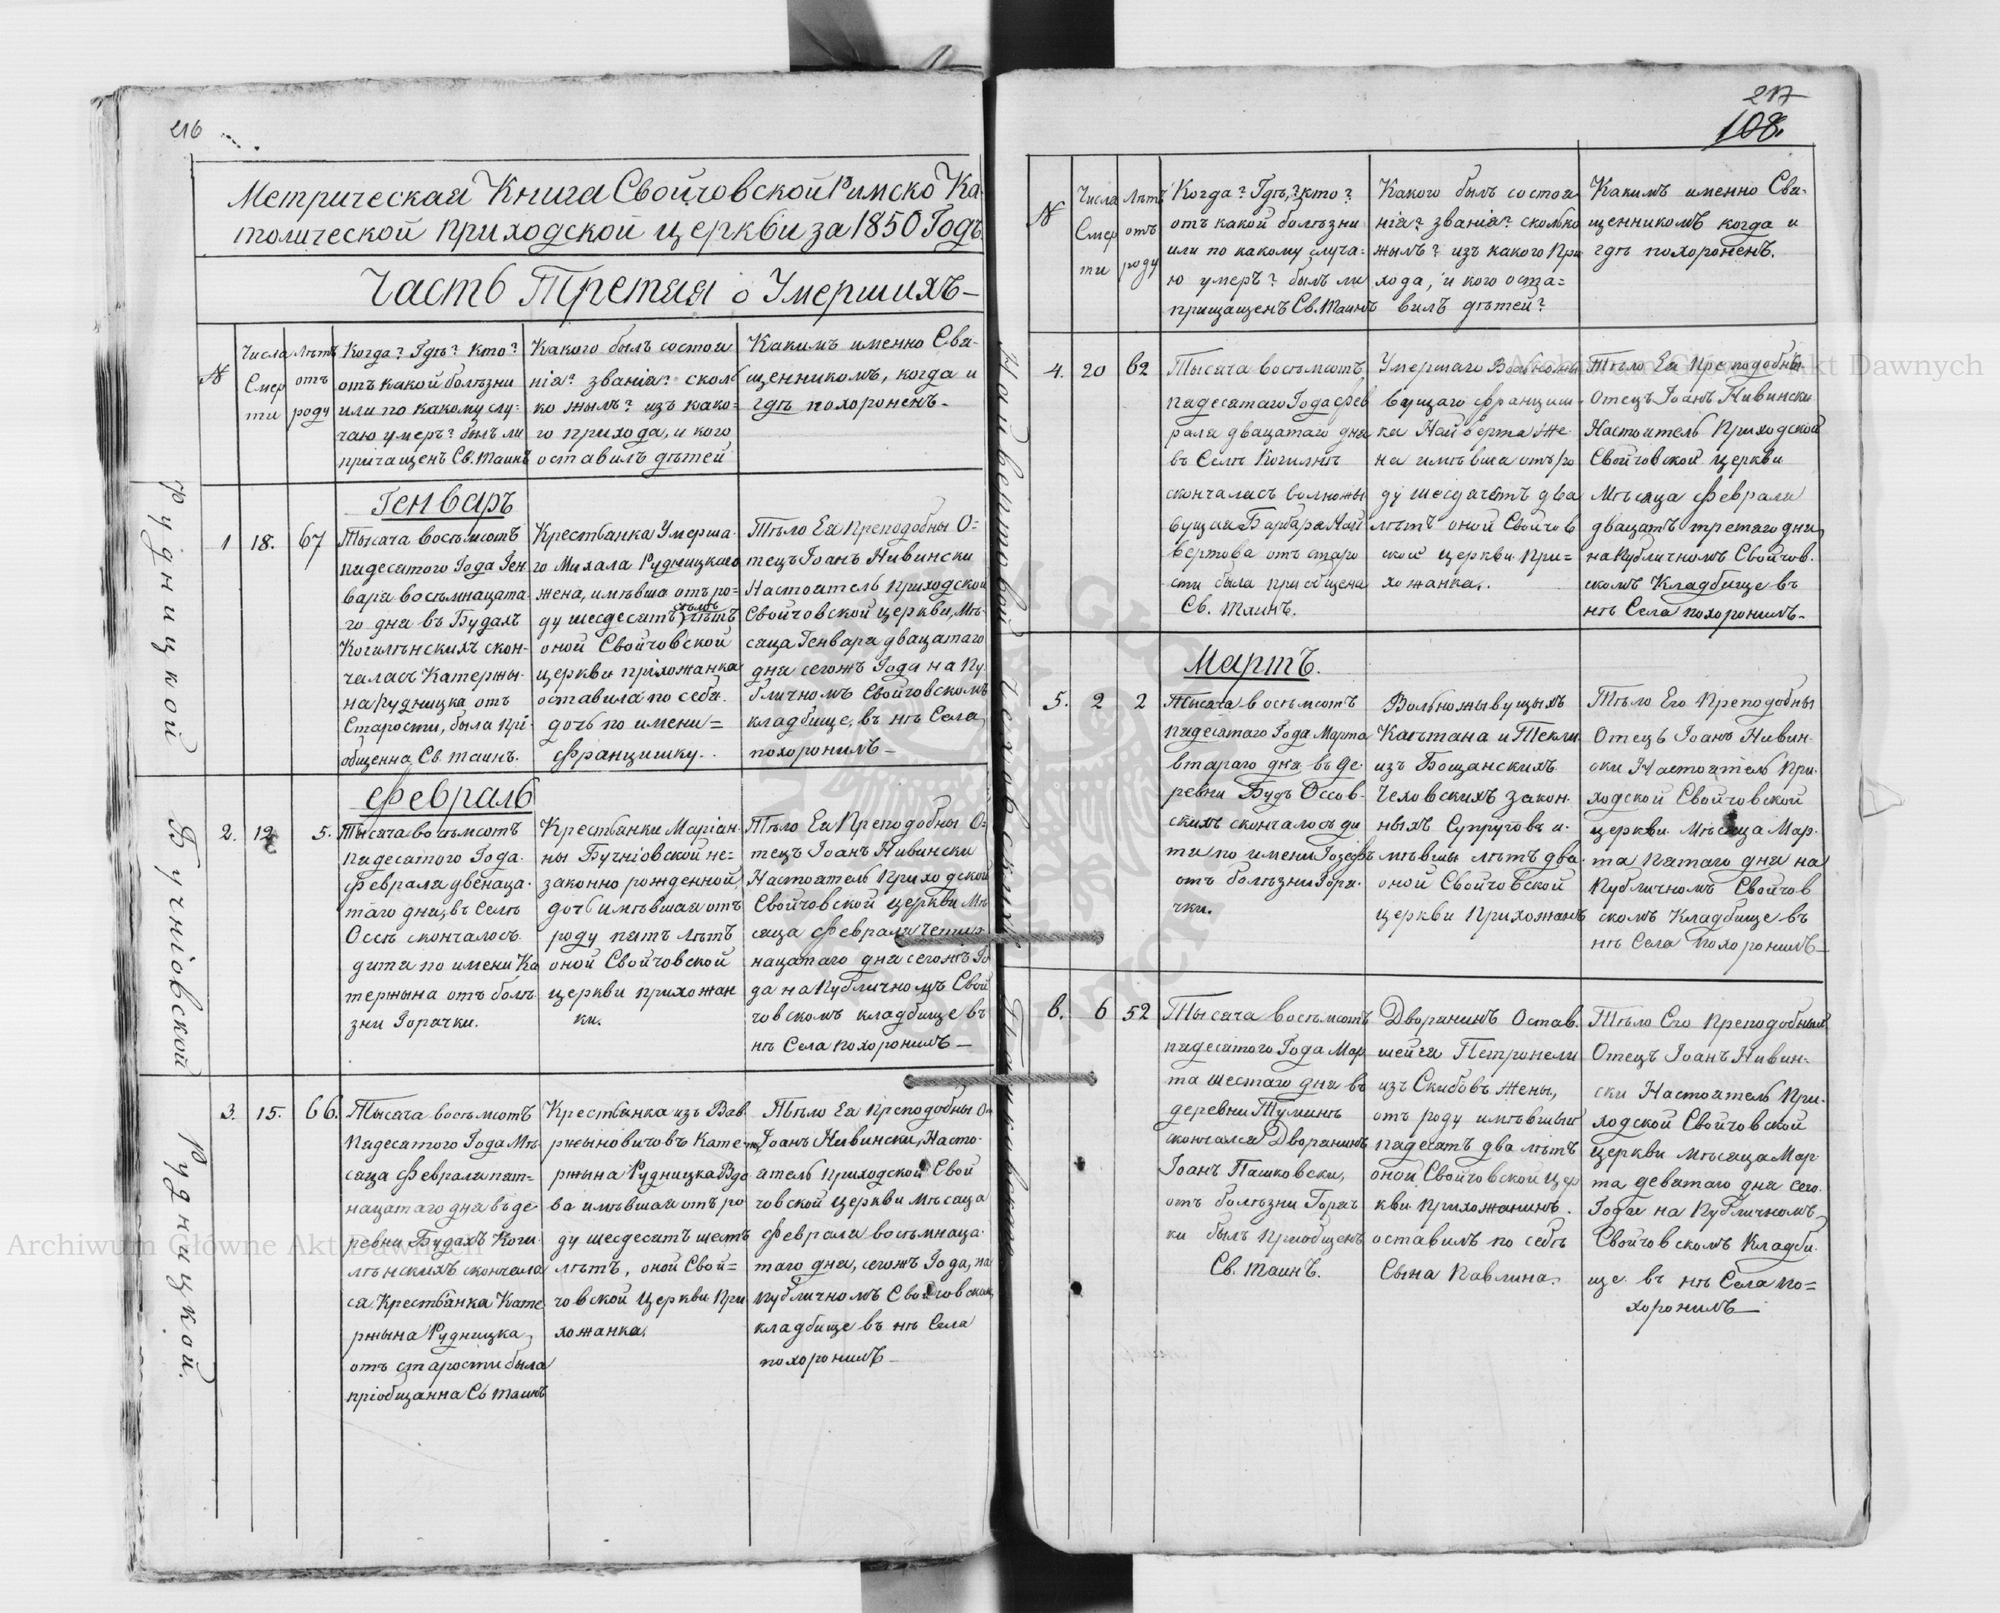 216
Метрическая Книга Свойчовской Римско Ка-
толической приходской церкви за 1850 Годъ
Часть Третяя о Умершихъ—
№
Числа Смер ти
Лѣтъ отъ роду
Когда? Гдѣ? кто?
отъ какой болѣзни
или по какому слу-
чаю умеръ? былъ ли
причащенъ Св. таинъ
Какого былъ состоя
нія? званія? сколь
ко жылъ? изъ како-
го прихода, и кого
оставилъ дѣтей
Какимъ именно Свя-
щенникомъ, когда и
гдѣ похороненъ.
Генварь
1
18.
67
Тысяча восемьсотъ
пядесятого Года Ген
варя восемьнацата-
го дня въ Будахъ
Когиленскихъ скон-
чалась Катержы-
на Рудницка отъ
Старости, была прі-
общенна Св. таинъ.
Крестьянка Умерша-
го Михала Рудницкаго
жена, имѣвша отъ ро-
ду шесдесятъ семь лѣтъ
оной Свойчовской
церкви пріхожанка
оставила по себя
дочь по имени=
Францишку.
Тѣло Ея Преподобны О-
тецъ Іоанъ Нивински
Настоятель Приходской
Свойчовской церкви, Мѣ-
саца Генваря двацатаго
дня сегожъ Года на Пу-
бличномъ Свойчовскомъ
кладбище, въ нѣ Села
похоронилъ—
Рудницкой
Февраль
2.
12
5.
Тысяча восемьсотъ
пядесятого Года
Февраля двенаца-
таго дня, въ Селѣ
Оссѣ скончалось
дитя по имени Ка
тержына отъ болѣ
зни Горачки.
Крестьянки Маріан-
ны Бучніовской не=
законно рожденной,
дочь имѣвшая отъ
роду пять лѣтъ
оной Свойчовской
церкви прихожан
ки.
Тѣло Ея Преподобны О-
тецъ Іоанъ Нивински
Настоятель Приходской
Свойчовской церкви Мѣ
саца Февраля четыр
нацатаго дня сегожъ Го
да на Публичномъ Свой
човскомъ кладбище въ
нѣ Села похоронилъ—
Бучніовской
3.
15.
66.
Тысяча восемьсотъ
Пядесятого Года Мѣ-
саца Февраля пят-
нацатаго дня въ де
ревни Будахъ Коги-
ленскихъ скончала
ся Крестьянка Кате
ржына Рудницка,
отъ старости была
пріобщанна Св таинъ
Крестьянка изъ Вав
ржыновичовъ Кате-
ржына Рудницка Вдо
ва имѣвшая отъ ро
ду шесдесятъ шесть
лѣтъ, оной Свой=
човской Церкви При
хожанка.
Тѣло Ея Преподобны О
тцъ Іоанъ Нивински, Насто-
ятель Приходской Свой
човской церкви Мѣсаца
Февраля восемьнаца-
таго дня, сегожъ Года, на
Публичномъ Свойчовском
кладбище въ нѣ Села
похоронилъ—
Рудницкой.
217
108.
№
Числа Смер ти
Лѣтъ отъ роду
Когда? Гдѣ? кто?
отъ какой болѣзни
или по какому случа=
ю умеръ? былъ ли
прищащенъ Св. Таинъ
Какого былъ состоя
нія? званія? сколько
жылъ? изъ какого При
хода, и кого оста=
вилъ дѣтей?
Какимъ именно Свя-
щенникомъ когда и
гдѣ похороненъ.
4.
20
62
Тысяча восемьсотъ
пядесятаго Года Фев
раля двацатаго дня
въ Селѣ Когильнѣ
скончалась вольножы
вущая Барбара Най
вертова отъ старо
сти была пріобщена
Св. Таинъ.
Умершаго Вольножы
вущаго Францыш-
ка Найверта Же-
на имѣвша отъ ро
ду шесдачетъ два
лѣтъ оной Свойчов
ской церкви При=
хожанка.
Тѣло Ея Преподобны
Отецъ Іоанъ Нивински
Настоятель Приходской
Свойчовской церкви
Мѣсяца Февраля
двацать третаго дня
на Публичномъ Свойчов.
скомъ Кладбище въ
нѣ Села похоронилъ—
Найвертовой
Мартъ.
5.
2
2
Тысяча восемьсотъ
пядесятаго Года Марта
втараго дня въ де-
ревни Будъ Оссов-
скихъ скончалось ди
тя по имени Іозефъ
отъ болѣзни Гора-
чки.
Вольножывущыхъ
Каетана и Текли
изъ Бощанскихъ
Чеховскихъ закон-
ныхъ Супруговъ и-
мѣвшы лѣтъ два
оной Свойчовской
церкви Прихожанъ
Тѣло Его Преподобны
Отецъ Іоанъ Нивин-
ски Настоятель При-
ходской Свойчовской
церкви Мѣсяца Мар-
та Пятаго дня на
Публичномъ Свойчов
скомъ Кладбище въ
нѣ Села Похоронилъ—
Чеховских
6.
6
52
Тысяча восемьсотъ
пядесятого Года Мар
та шестаго дня въ
деревни Туминѣ
скончался Дворанинъ
Іоанъ Пашковски,
отъ болѣзни Горач
ки былъ Пріобщенъ
Св. таинъ.
Дворанинъ Остав-
шейся Петронели
изъ Скибовъ Жены,
отъ роду имѣвшый
пядесятъ два лѣтъ
оной Свойчовской Цер
кви Прихожанинъ.
оставилъ по себѣ
Сына Павлина.
Тѣло Его Преподобный
Отецъ Іоанъ Нивин-
ски Настоятель При-
ходской Свойчовской
церкви Мѣсяца Мар
та деватаго дня сего
Года на Публичномъ
Свойчовскомъ Кладби-
ще въ нѣ Села По=
хоронилъ—
Archiwum Główne Akt Dawnych
Archiwum Główne Akt Dawnych